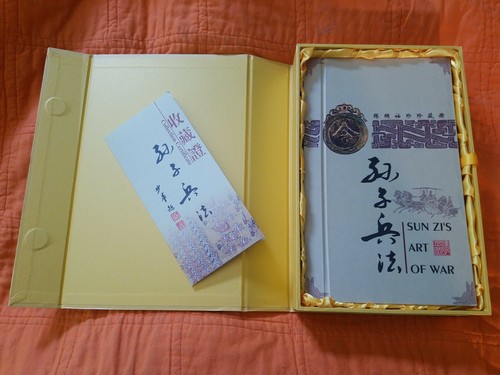 收藏證
孙子兵法
令
孙子兵法
SUN ZI'S
ART
OF WAR